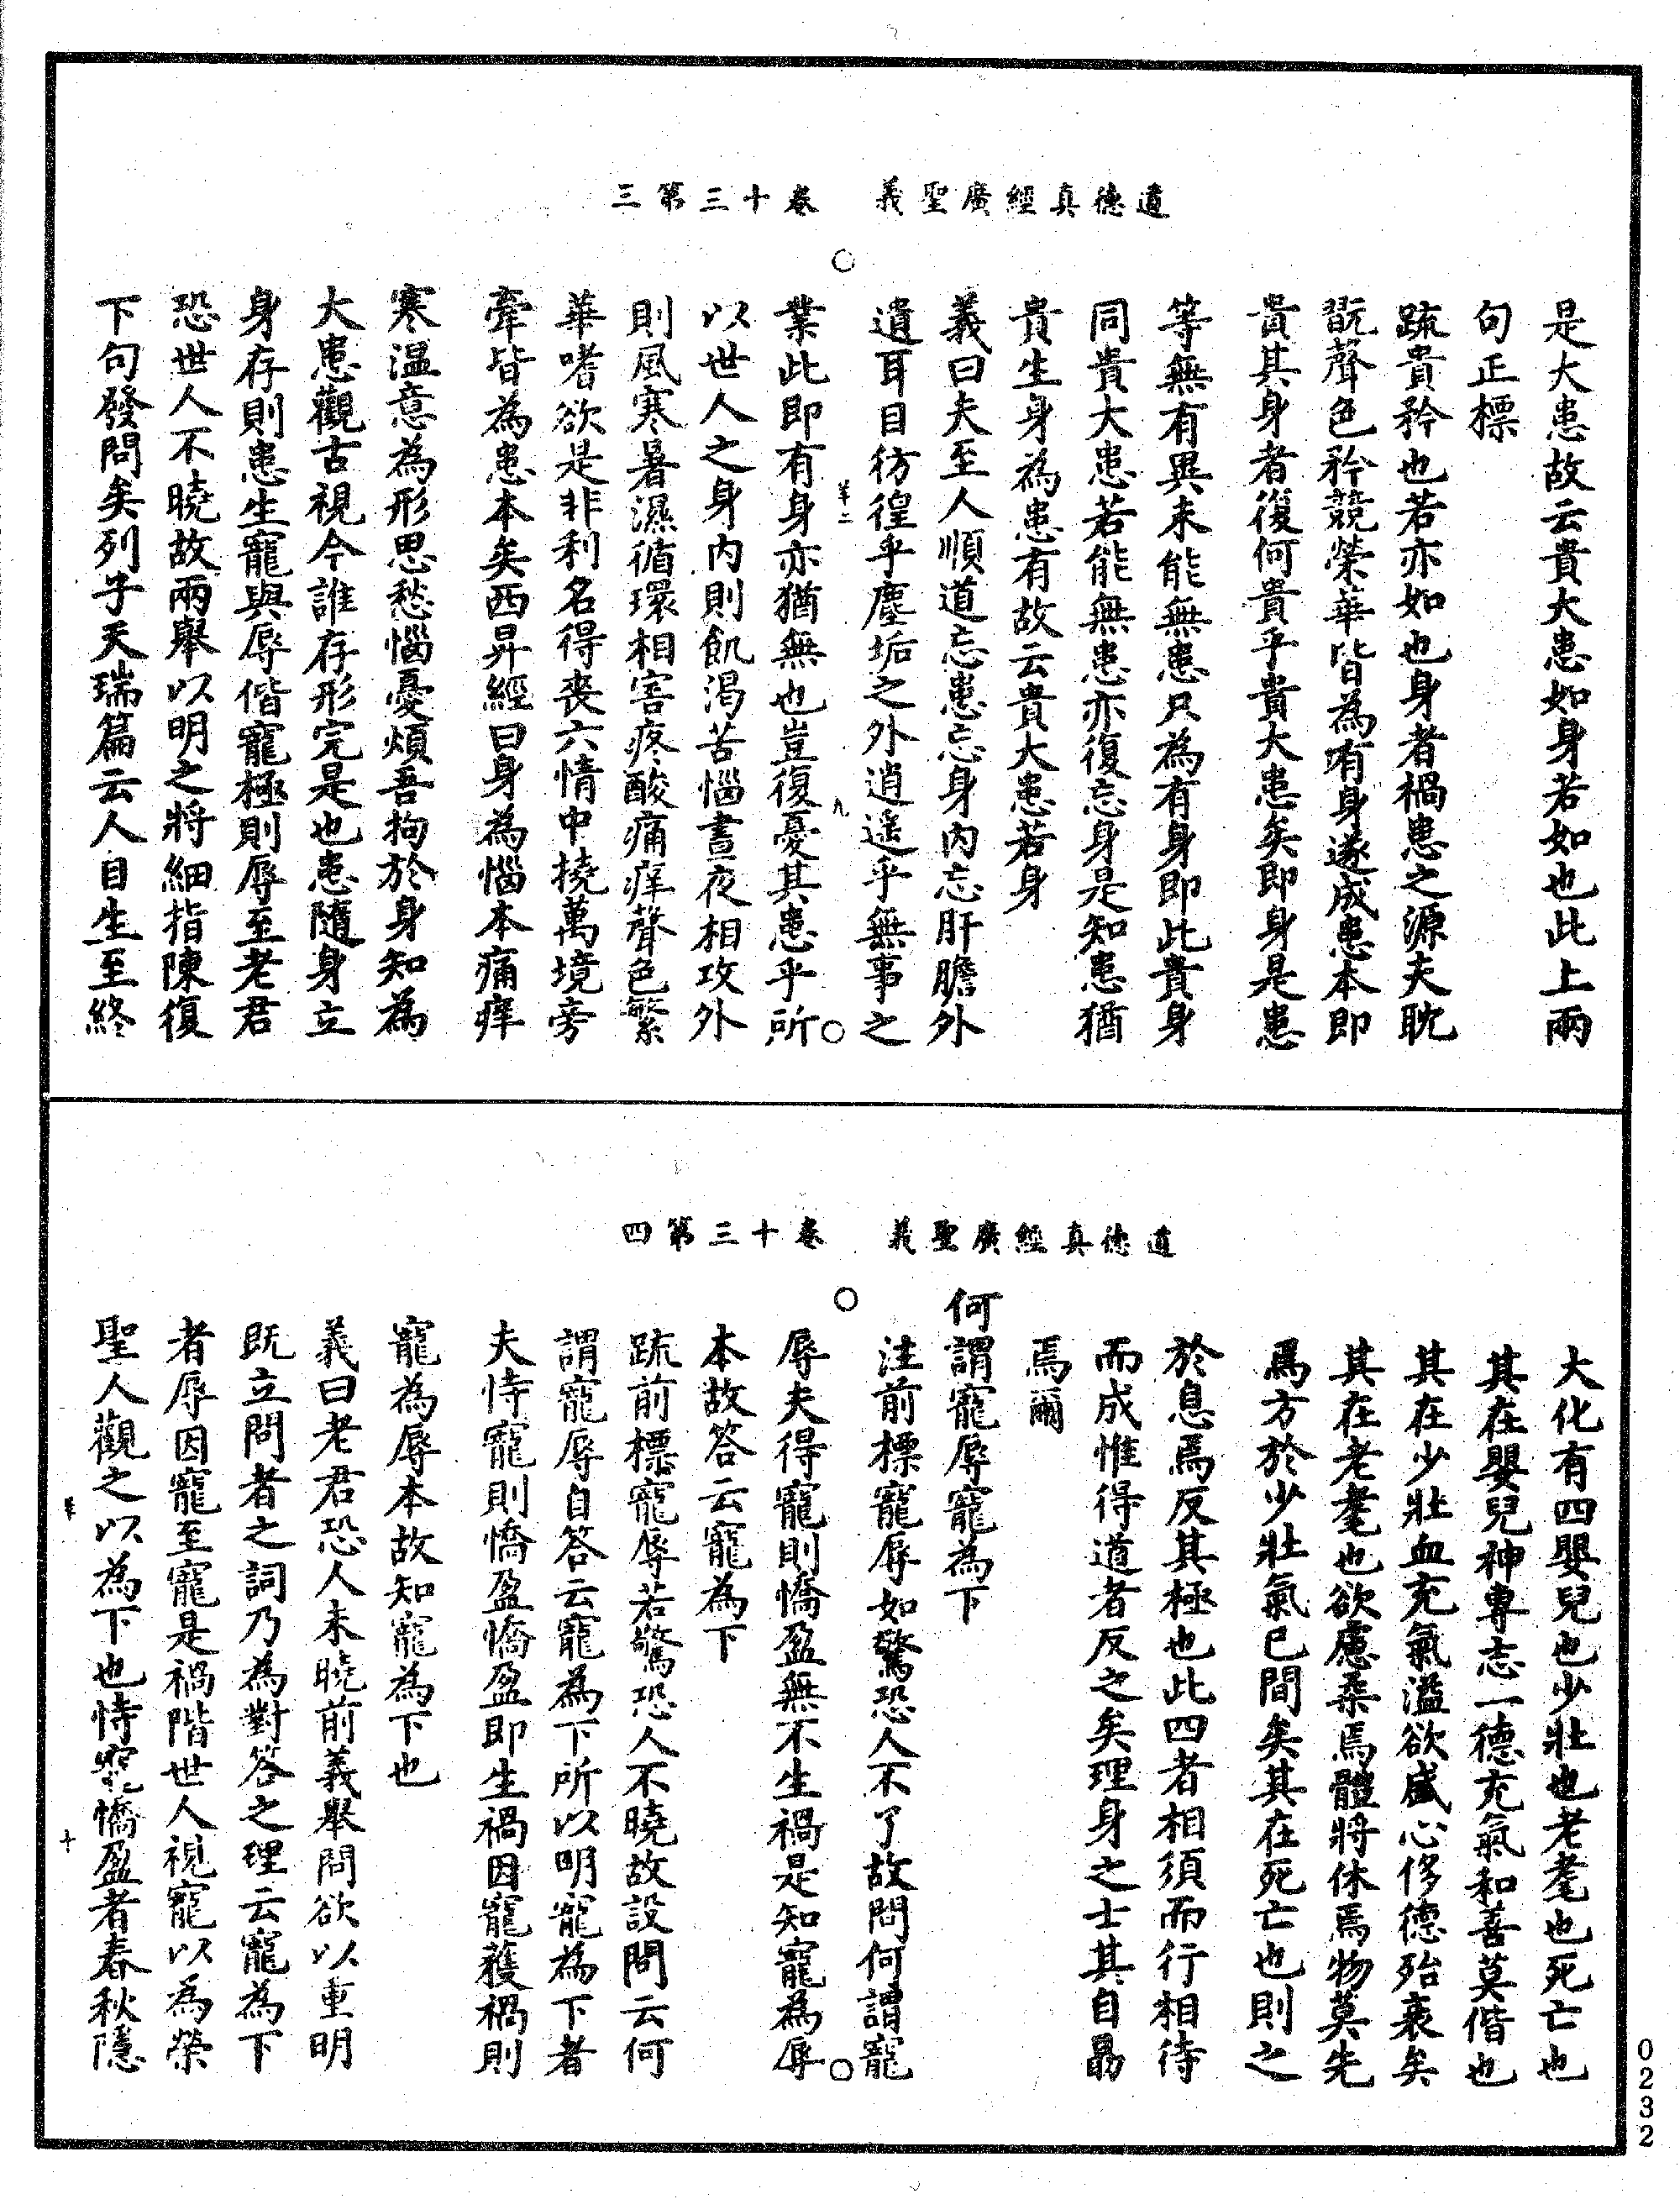 道德真經廣聖義　卷十三第三
是大患故云貴大患如身若如也此上兩
句正標
疏貴矜也若亦如也身者禍患之源夫耽
翫聲色矜競榮華皆為有身遂成患本即
貴其身者復何貴乎貴大患矣即身是患
等無有異未能無患只為有身即此貴身
同貴大患若能無患亦復忘身是知患猶
貴生身為患有故云貴大患若身
義曰夫至人順道忘患忘身內忘肝膽外
遺耳目彷徨乎塵垢之外逍遥乎無事之
羊二　九
業此即有身亦猶無也豈復憂其患乎所
以世人之身內則飢渴苦惱晝夜相攻外
則風寒暑濕循環相害疼酸痛痒聲色繁
華嗜欲是非利名得喪六情中撓萬境旁
牽皆為患本矣西昇經曰身為惱本痛痒
寒温意為形思愁惱憂煩吾拘於身知為
大患觀古視今誰存形完是也患隨身立
身存則患生寵與辱偕寵極則辱至老君
恐世人不曉故兩舉以明之將細指陳復
下句發問矣列子天瑞篇云人自生至終
道德真經廣聖義　卷十三第四
大化有四嬰兒也少壯也老耄也死亡也
其在嬰兒神專志一德充氣和善莫偕也
其在少壯血充氣溢欲盛心侈德殆衰矣
其在老耄也欲慮柔焉體將休焉物莫先
焉方於少壯氣已間矣其在死亡也則之
於息焉反其極也此四者相須而行相待
而成惟得道者反之矣理身之士其自勗
焉爾
何謂寵辱寵為下
注前標寵辱如驚恐人不了故問何謂寵
辱夫得寵則憍盈無不生禍是知寵為辱
本故答云寵為下
疏前標寵辱若驚恐人不曉故設問云何
謂寵辱自答云寵為下所以明寵為下者
夫恃寵則憍盈憍盈即生禍因寵獲禍則
寵為辱本故知寵為下也
義曰老君恐人未曉前義舉問欲以重明
既立問者之詞乃為對答之理云寵為下
者辱因寵至寵是禍階世人視寵以為榮
聖人觀之以為下也恃寵憍盈者春秋隱
羊　十
0232